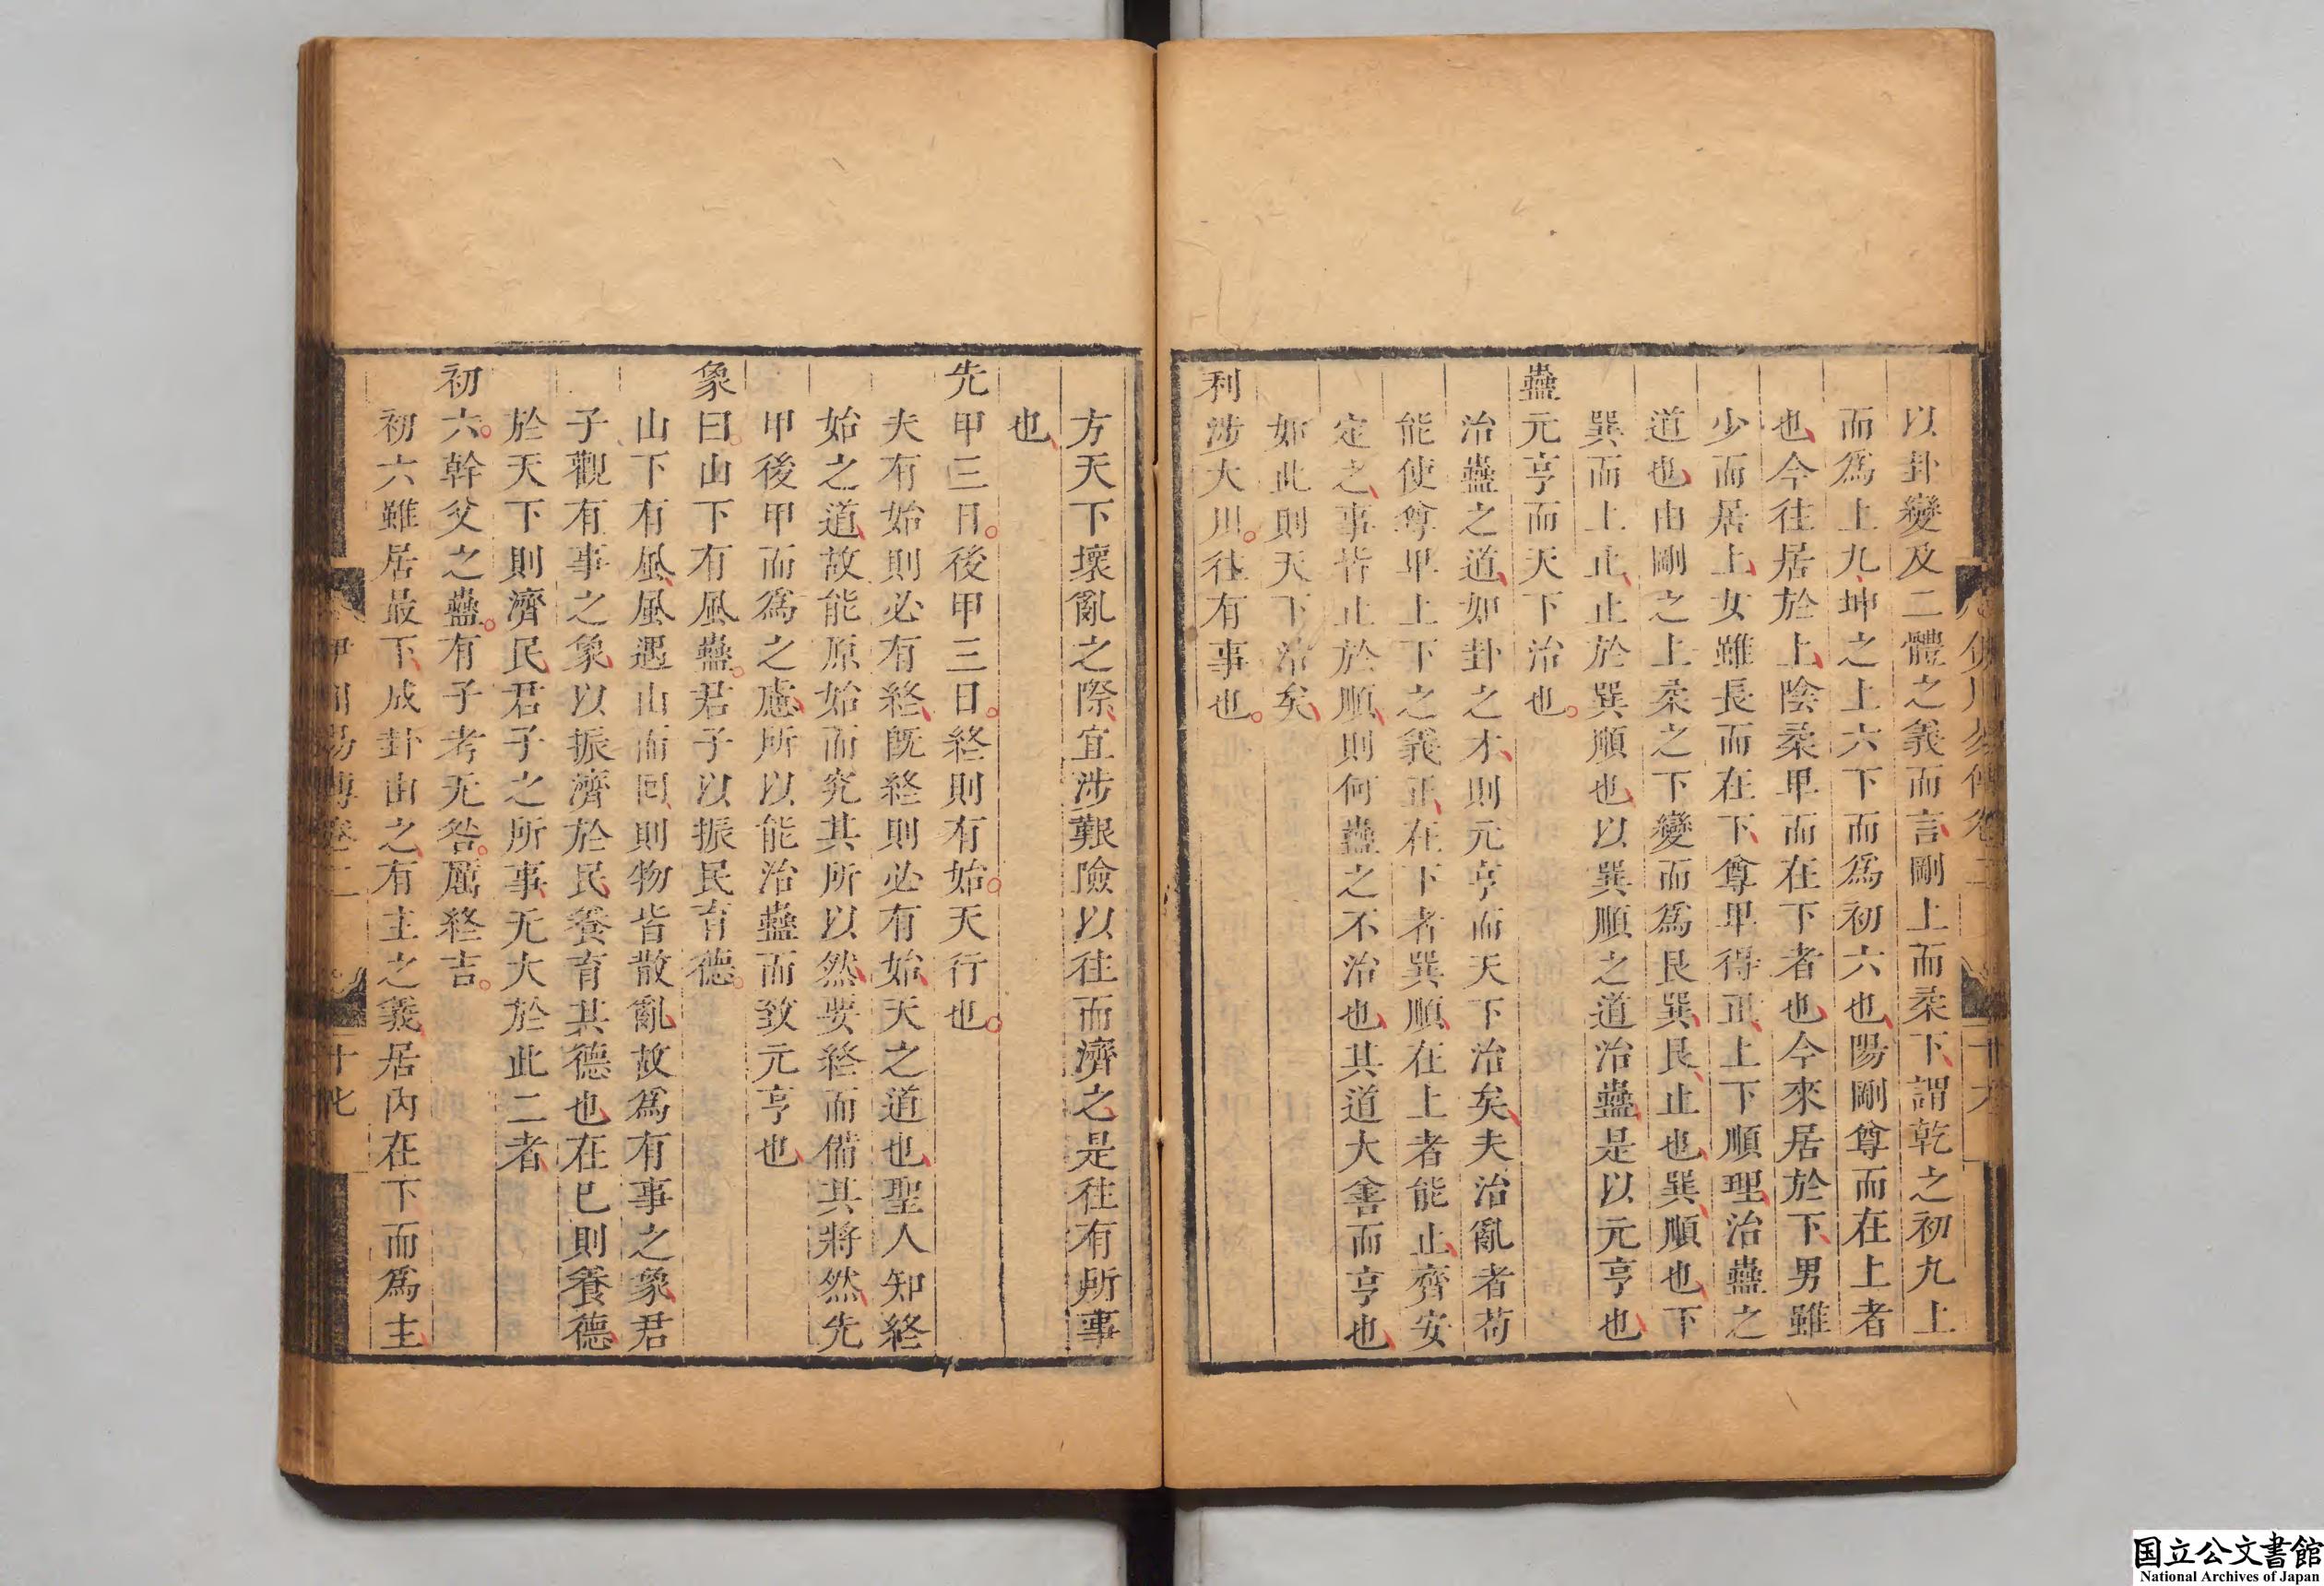 以卦變及二體之義而言剛上而柔下謂乾之初九上
而爲上九坤之上六下而爲初六也陽剛尊而在上者
也今往居於上陰柔卑而在下者也今來居於下男雖
少而居上女雖長而在下尊卑得正上下順理治蠱之
道也由剛之上柔之下變而爲艮巽艮止也巽順也下
巽而上止止於巽順也以巽順之道治蠱是以元亨也
蠱元亨而天下治也
治蠱之道如卦之才則元亨而天下治矣夫治亂者苟
能使尊卑上下之義正在下者巽順在上者能止齊安
定之事皆止於順則何蠱之不治也其道大善而亨也
如此則天下治矣
利涉大川往有事也
方天下壞亂之際宜涉艱險以往而濟之是往有所事
也
先甲三日後甲三日終則有始天行也
夫有始則必有終旣終則必有始天之道也聖人知終
始之道故能原始而究其所以然要終而備其將然先
甲後甲而爲之慮所以能治蠱而致元亨也
象曰山下有風蠱君子以振民育德
山下有風風遇山而回則物皆散亂故爲有事之象君
子觀有事之象以振濟於民養育其德也在己則養德
於天下則濟民君子之所事无大於此二者
初六幹父之蠱有子考无咎厲終吉
初六雖居最下成卦由之有主之義居內在下而爲主
伊川易傳卷二
十七
国立公文書館
National Archives of Japan